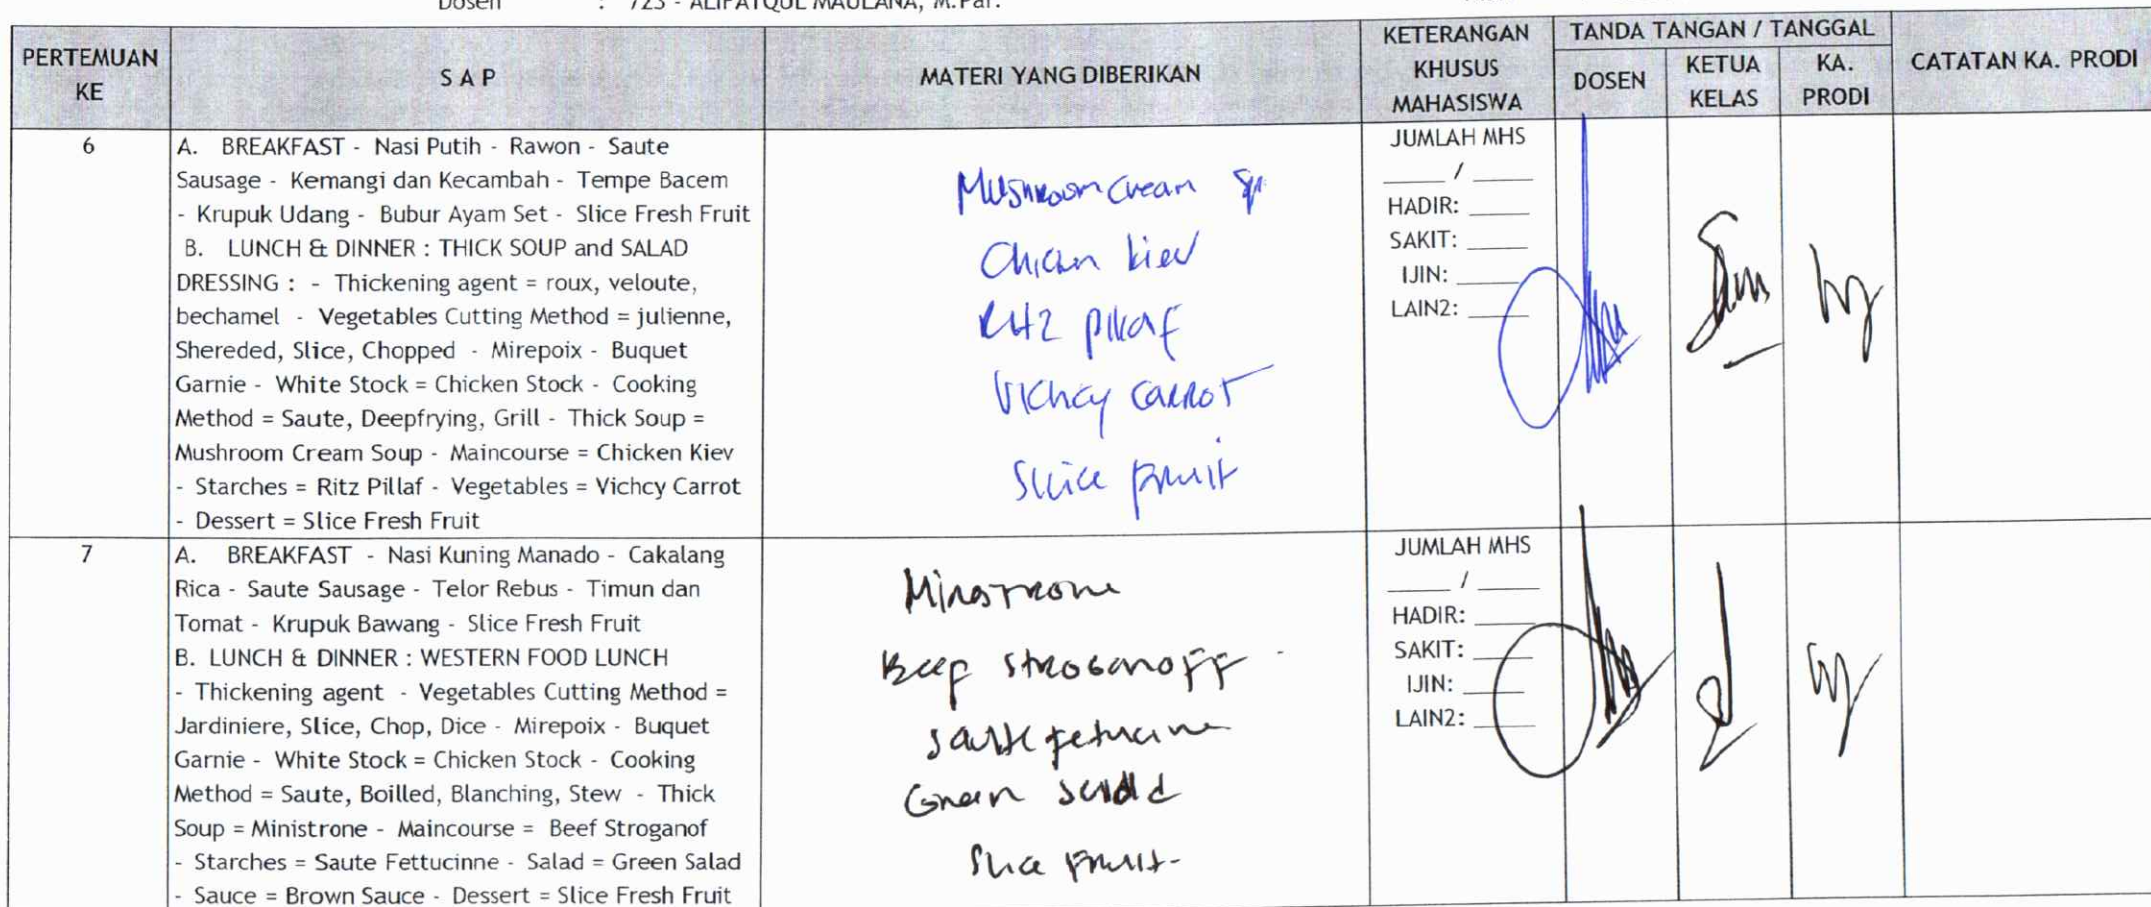 Dosen : 723 - ALIFATQUL MAULANA, M.Par.
PERTEMUAN KE
S A P
MATERI YANG DIBERIKAN
KETERANGAN KHUSUS MAHASISWA
TANDA TANGAN / TANGGAL
DOSEN
KETUA KELAS
KA. PRODI
CATATAN KA. PRODI
6
A. BREAKFAST - Nasi Putih - Rawon - Saute
Sausage - Kemangi dan Kecambah - Tempe Bacem
- Krupuk Udang - Bubur Ayam Set - Slice Fresh Fruit
B. LUNCH & DINNER : THICK SOUP and SALAD
DRESSING : - Thickening agent = roux, veloute,
bechamel - Vegetables Cutting Method = julienne,
Shereded, Slice, Chopped - Mirepoix - Buquet
Garnie - White Stock = Chicken Stock - Cooking
Method = Saute, Deepfrying, Grill - Thick Soup =
Mushroom Cream Soup - Maincourse = Chicken Kiev
- Starches = Ritz Pillaf - Vegetables = Vichcy Carrot
- Dessert = Slice Fresh Fruit
Mushroom Cream
Chicken kiev
Ritz pilaf
Vichcy carrot
Slice fruit
JUMLAH MHS
____ / ____
HADIR: ____
SAKIT: ____
IJIN: ____
LAIN2: ____
7
A. BREAKFAST - Nasi Kuning Manado - Cakalang
Rica - Saute Sausage - Telor Rebus - Timun dan
Tomat - Krupuk Bawang - Slice Fresh Fruit
B. LUNCH & DINNER : WESTERN FOOD LUNCH
- Thickening agent - Vegetables Cutting Method =
Jardiniere, Slice, Chop, Dice - Mirepoix - Buquet
Garnie - White Stock = Chicken Stock - Cooking
Method = Saute, Boilled, Blanching, Stew - Thick
Soup = Ministrone - Maincourse = Beef Stroganof
- Starches = Saute Fettucinne - Salad = Green Salad
- Sauce = Brown Sauce - Dessert = Slice Fresh Fruit
Minestrone
Beef stroganoff
Saute fetucine
Green salad
Slice fruit
JUMLAH MHS
____ / ____
HADIR: ____
SAKIT: ____
IJIN: ____
LAIN2: ____